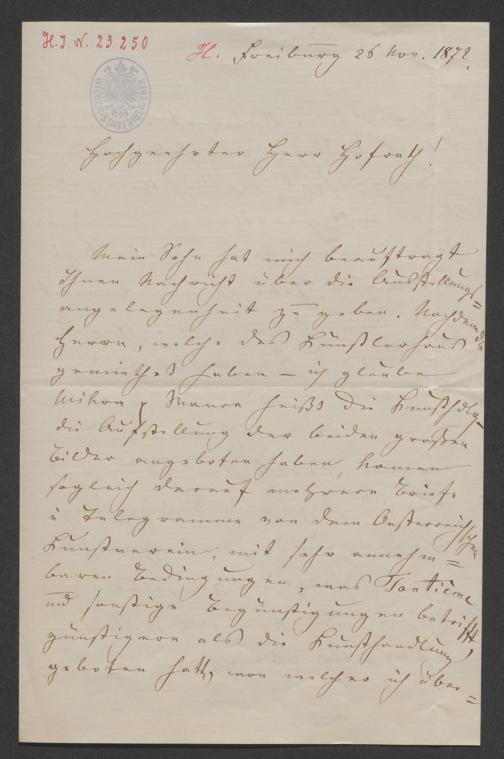 H. I. N. 23250
H. Freiburg 26 Nov. 1872.
WIENER STADTBIBLIOTHEK
Hochgeehrter Herr Hofrath!
Mein Sohn hat mich beauftragt
Ihnen Nachricht über die Ausstellungs=
angelegenheit zu geben. Nachdem die
Herrn, welche das Künstlerhaus
gemiethet haben – ich glaube
heißt die Kunsthdlg
die Aufstellung der beiden großen
Bilder angeboten haben, kamen
sogleich darauf mehrere Briefe
u Telegramme von dem Oesterreichschen
Kunstverein, mit sehr annehm=
baren Bedingungen, was Tantième
und sonstige Begünstigungen betrifft,
günstigere als die Kunsthandlung
geboten hatte, von welcher ich über=